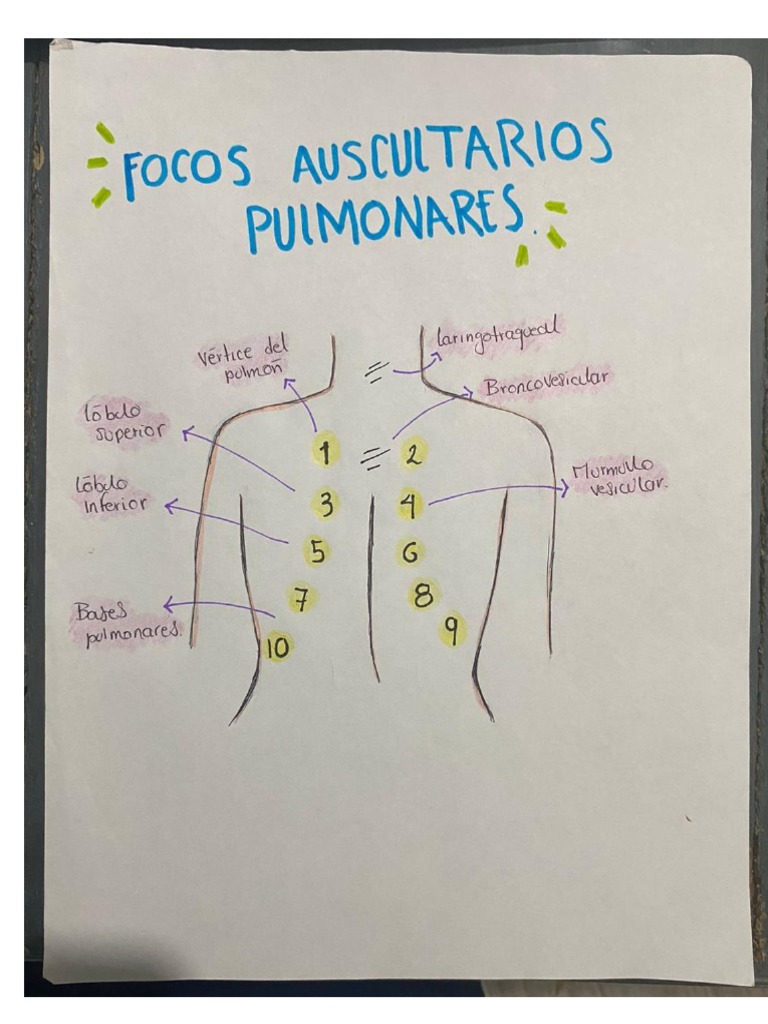 FOCOS AUSCULTARIOS
PULMONARES.
Vértice del
pulmoñ
laringotraqueal
Broncovesicular
lóbulo
superior
1
2
Murmullo
vesicular.
lóbulo
Inferior
3
4
5
6
7
8
Bases
pulmonares.
9
10